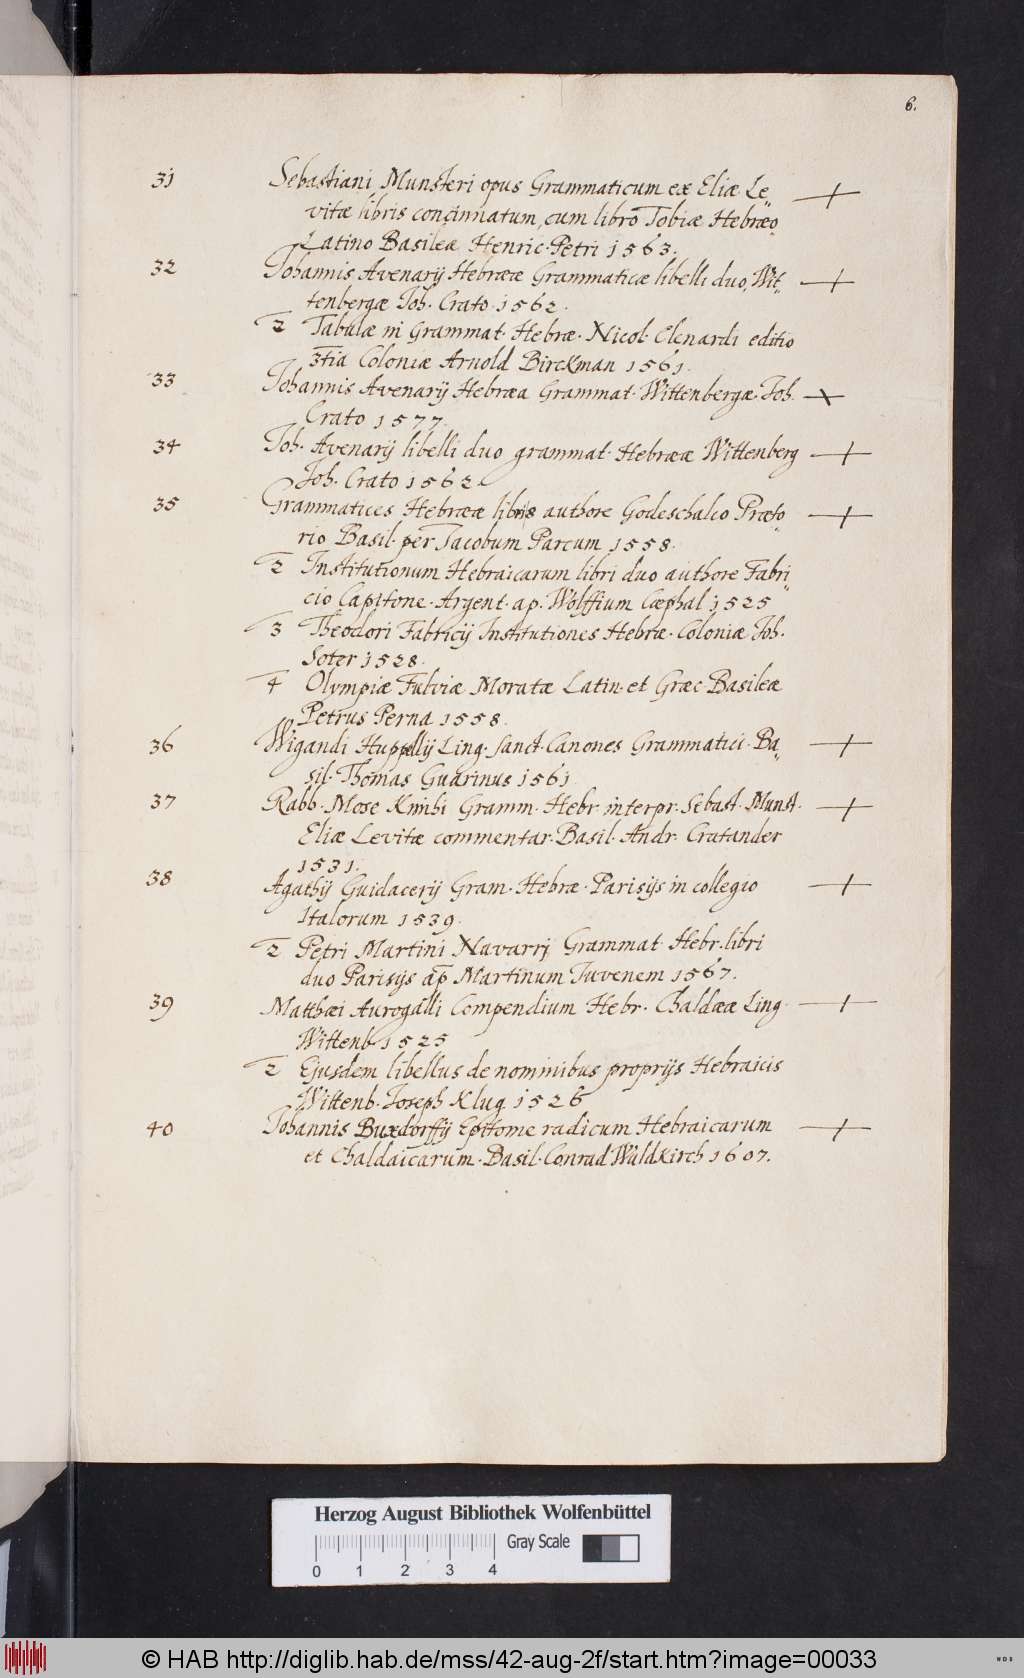 6.
31 Sebastiani Munsteri opus Grammaticum ex Eliæ Le„
vitæ libris concinnatum, cum libro Tobiæ Hebræo„
Latino Basileæ Henric. Petri 1563.
32 Johannis Avenarij Hebrææ Grammaticæ libelli duo, Wit„
tenbergæ Joh. Crato. 1562.
2 Tabulæ in Grammat. Hebræ. Nicol. Clenardi editio
3tia Coloniæ Arnold Birckman 1561.
33 Johannis Avenarij Hebræa Grammat. Wittenbergæ. Joh.
Crato 1577.
34 Joh. Avenarij libelli duo grammat. Hebrææ Wittenberg
Joh. Crato 1562.
35 Grammatices Hebrææ libris authore Godeschalco Præto„
rio Basil. per Jacobum Parcum 1558.
2 Institutionum Hebraicarum libri duo authore Fabri„
cio Capitone. Argent. ap. Wolffium Cæphal 1525
3 Theodori Fabricij Institutiones Hebræ. Coloniæ Joh.
Soter 1528.
4 Olympiæ Fulviæ Moratæ Latin. et Græc. Basileæ
Petrus Perna 1558.
36 Wigandi Huppellij Ling. Sanct. Canones Grammatici. Ba„
sil. Thomas Guarinus 1561
37 Rabb. Mose Kimhi Gramm. Hebr. interpr. Sebast. Munst.
Eliæ Levitæ commentar. Basil. Andr. Cratander
1531.
38 Agathij Guidacerij Gram. Hebræ. Parisijs in collegio
Italorum 1539.
2 Petri Martini Navarrj Grammat. Hebr. libri
duo Parisijs ap̄ Martinum Juvenem 1567.
39 Matthæi Aurogalli Compendium Hebr. Chaldææ Ling.
Wittenb. 1525
2 Ejusdem libellus de nominibus proprijs Hebraicis
Wittenb. Joseph Klug 1526
40 Johannis Buxdorffij Epitome radicum Hebraicarum
et Chaldaicarum. Basil. Conrad Waldkirch 1607.
Herzog August Bibliothek Wolfenbüttel
Gray Scale
0 1 2 3 4
© HAB http://diglib.hab.de/mss/42-aug-2f/start.htm?image=00033